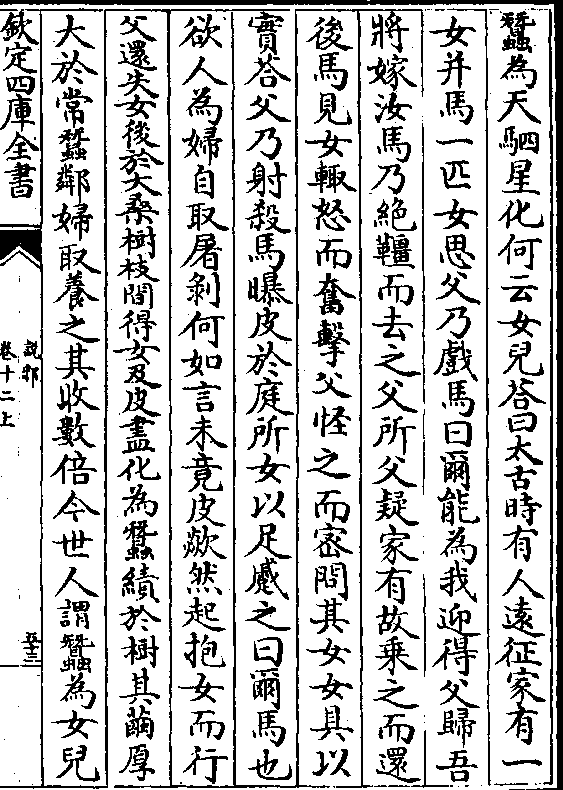 蠶為天駟星化何云女兒荅曰太古時有人遠征家有一
女并馬一匹女思父乃戲馬曰爾能為我迎得父歸吾
將嫁汝馬乃絶韁而去之父所父疑家有故乗之而還
後馬見女輙怒而奮擊父怪之而宻問其女女具以
實荅父乃射殺馬曝皮於庭所女以足蹙之曰爾馬也
欲人為婦自取屠剝何如言未竟皮歘然起抱女而行
父還失女後於大桑樹枝間得女及皮盡化為蠶績於樹其繭厚
大於常蠶鄰婦取養之其收數倍今世人謂蠶為女兒
欽定四庫全書
說郛
卷十二上
五十三